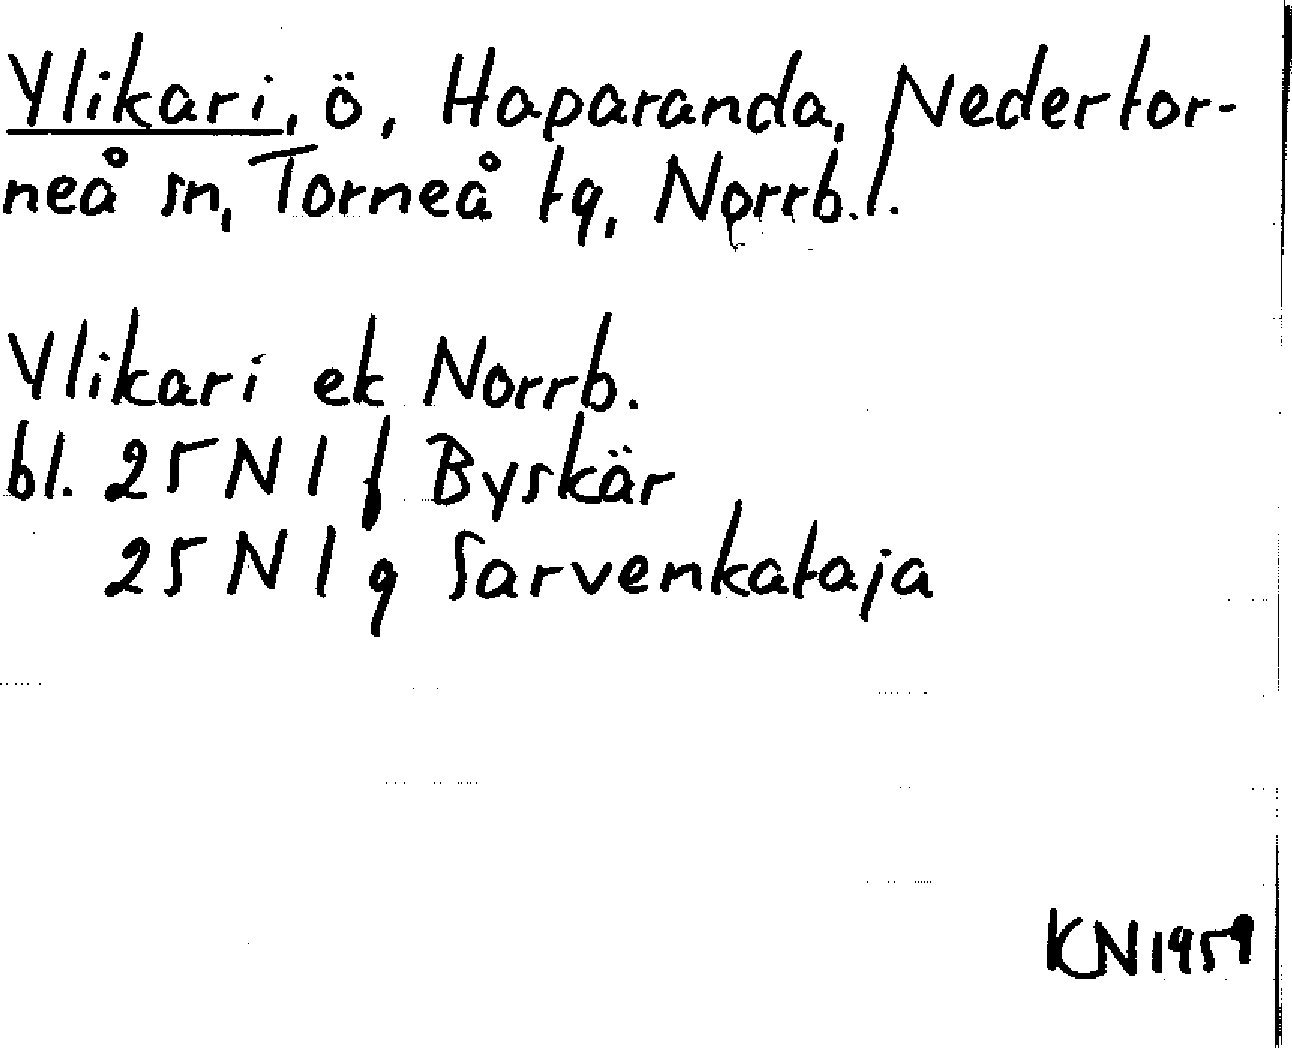 Ylikari, ö, Haparanda, Nedertor-
neå sn, Torneå tg, Norrb.l.
Ylikari ek Norrb.
bl. 25 N 1 f Byskär
25 N 1 g Sarvenkataja
KN 1959